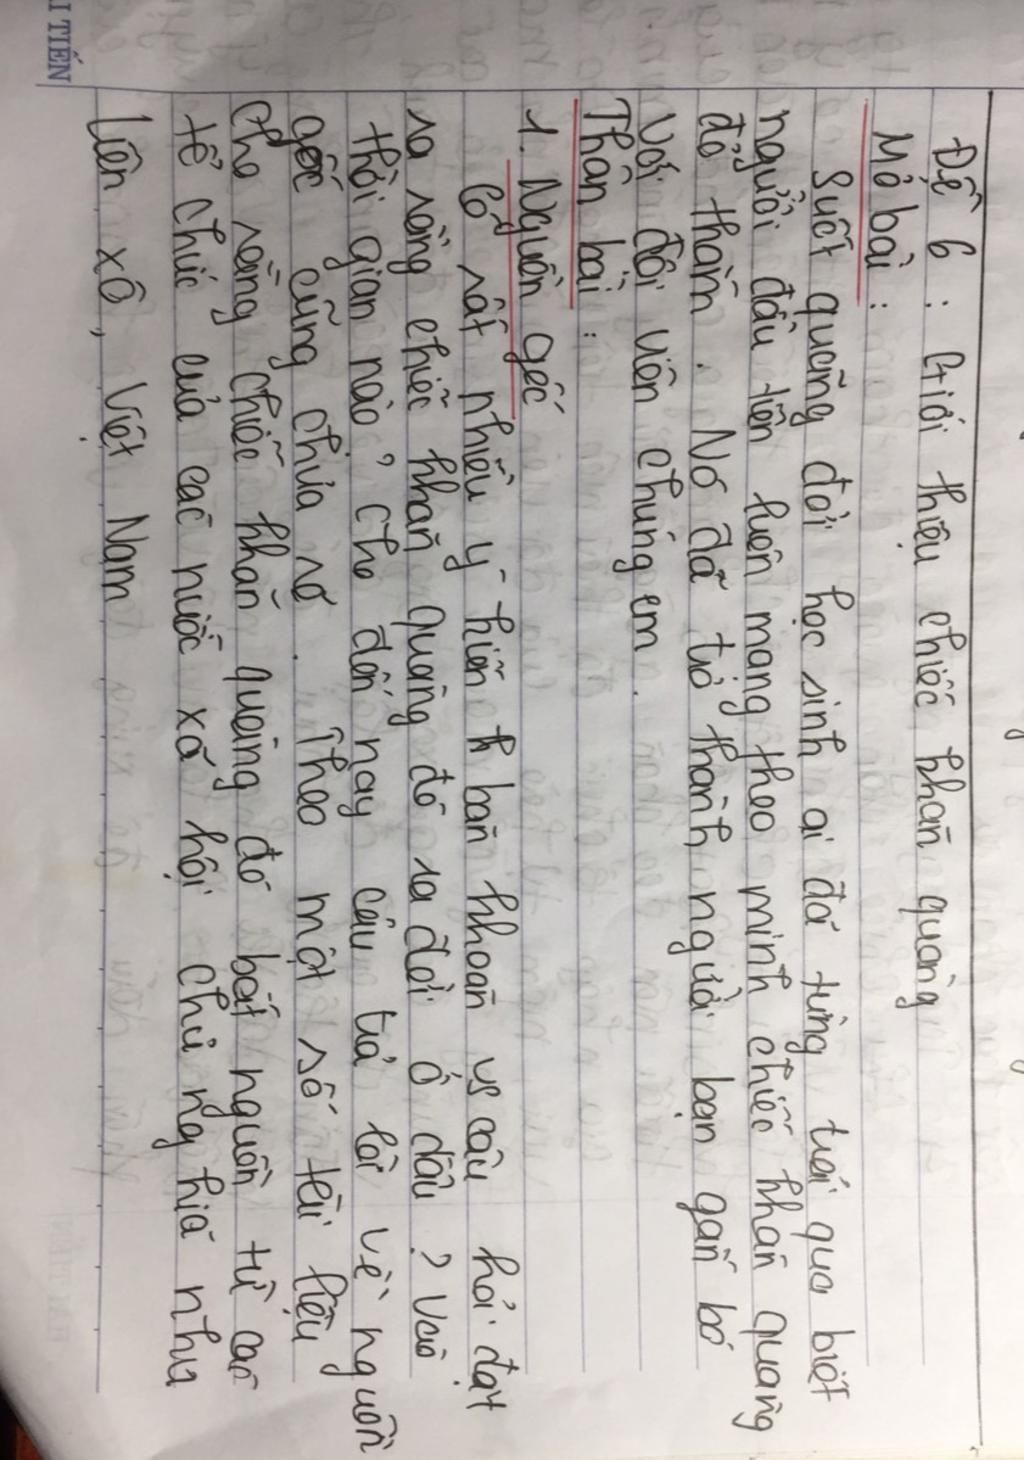 ẢI TIẾN
Đề 6 : Giới thiệu chiếc khăn quàng
Mở bài :
Suốt quãng đời học sinh ai đã từng trải qua biết
người đầu tiên luôn mang theo mình chiếc khăn quàng
đỏ thắm . Nó đã trở thành người bạn gắn bó
với đội viên chúng em .
Thân bài :
1. Nguồn gốc
Có rất nhiều ý kiến băn khoăn vs câu hỏi đặt
ra rằng chiếc khăn quàng đỏ ra đời ở đâu ? Vào
thời gian nào ? Cho đến nay câu trả lời về nguồn
gốc cũng chưa rõ . Theo một số tài liệu
cho rằng chiếc khăn quàng đỏ bắt nguồn từ các
tổ chức của các nước xã hội chủ nghĩa như
Liên xô , Việt Nam